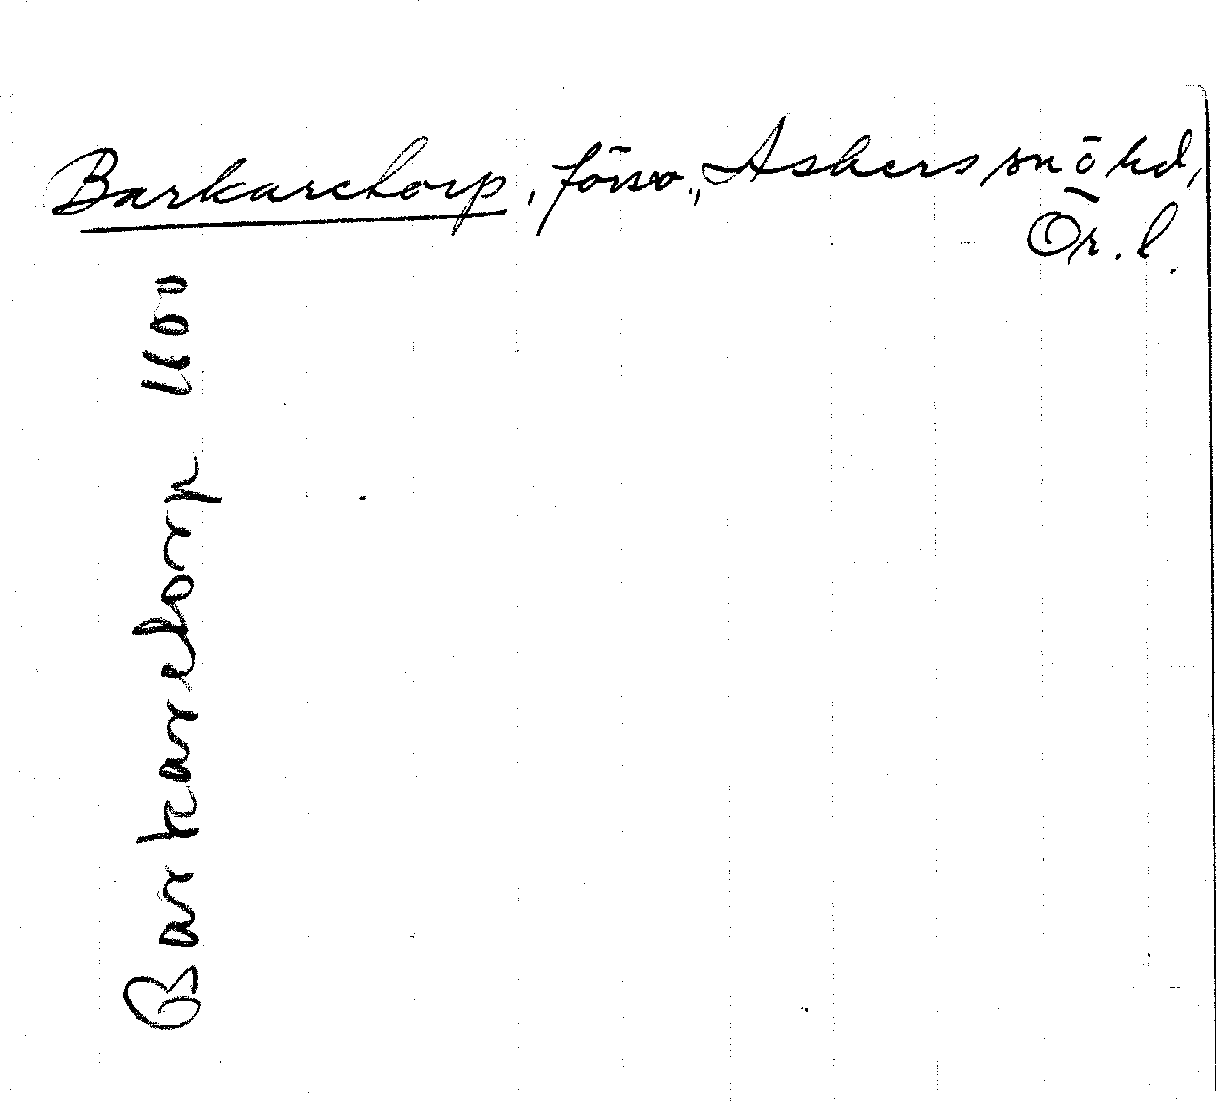 Barkaretorp, försv., Askers sn o hd,
Ör. l.
Barkaretorp 1600